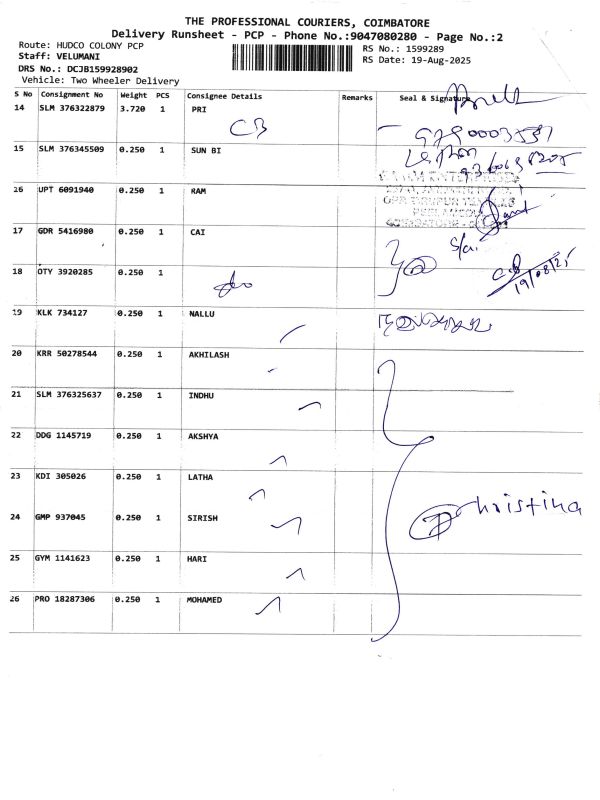 THE PROFESSIONAL COURIERS, COIMBATORE
Delivery Runsheet - PCP - Phone No.:9047080280 - Page No.:2
Route: HUDCO COLONY PCP
RS No.: 1599289
Staff: VELUMANI
RS Date: 19-Aug-2025
DRS No.: DCJB159928902
Vehicle: Two Wheeler Delivery
S No Consignment No Weight PCS Consignee Details Remarks Seal & Signature
14 SLM 376322879 3.720 1 PRI
CB
15 SLM 376345509 0.250 1 SUN BI
16 UPT 6091940 0.250 1 RAM
17 GDR 5416980 0.250 1 CAI
18 OTY 3920285 0.250 1
19/08/25
19 KLK 734127 0.250 1 NALLU
20 KRR 50278544 0.250 1 AKHILASH
21 SLM 376325637 0.250 1 INDHU
22 DDG 1145719 0.250 1 AKSHYA
23 KDI 305026 0.250 1 LATHA
Christina
24 GMP 937045 0.250 1 SIRISH
25 GYM 1141623 0.250 1 HARI
26 PRO 18287306 0.250 1 MOHAMED